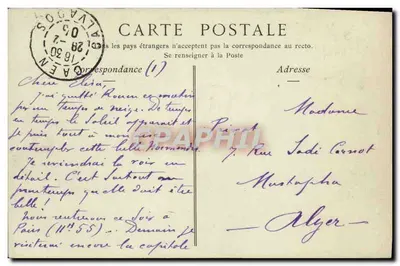 CARTE POSTALE
les pays étrangers n'acceptent pas la correspondance au recto.
Se renseigner à la Poste
Correspondance (1)
Adresse
CAEN
CALVADOS
16 30
28 -2
05
J'ai quitté Rouen
par un temps de neige. De temps
en temps le Soleil apparait et
je puis tout à mon
contempler cette belle Normandie
Je reviendrai la voir en
détail. C'est surtout au
printemps qu'elle doit être
belle!
Nous rentrerons ce Soir à
Paris (11h 55). Demain je
visiterai encore la capitale
Madame
7, Rue Sadi Carnot
Mustapha
Alger